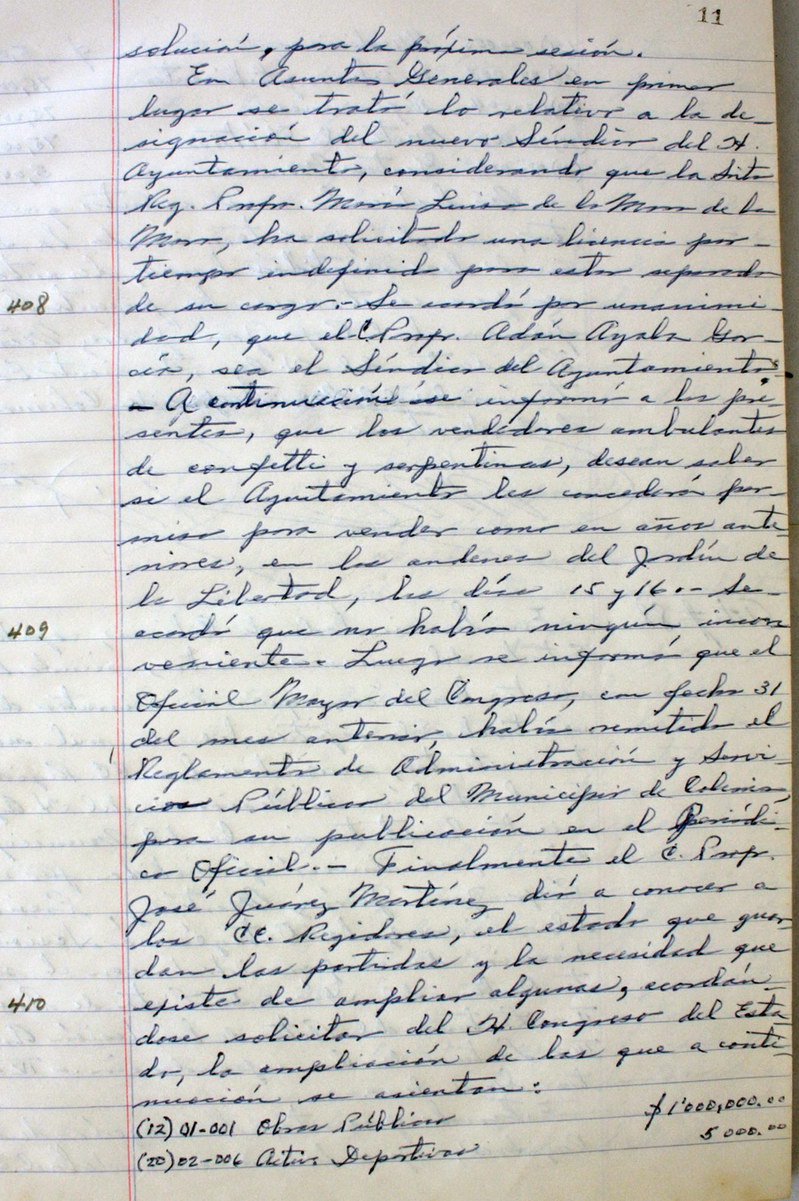 11
solución, para la próxima sesión.
En Asuntos Generales en primer
lugar se trató lo relativo a la de-
signación del nuevo Síndico del H.
Ayuntamiento, considerando que la Srita
Reg. Profr. María Luisa de la Mora de la
Mora, ha solicitado una licencia por-
tiempo indefinido para estar separada
408 de su cargo.- Se acordó por unanimi-
dad, que el C. Profr. Adán Ayala Gar-
cía, sea el Síndico del Ayuntamiento.
- A continuación se informó a los pre-
sentes, que los vendedores ambulantes
de confetti y serpentinas, desean saber
si el Ayuntamiento les concederá per-
miso para vender como en años ante-
riores, en los andenes del Jardín de
la Libertad, los días 15 y 16.- Se-
409 acordó que no había ningún incon
veniente.- Luego se informó que el
Oficial Mayor del Congreso, con fecha 31
del mes anterior, había remitido el
Reglamento de Administración y Servi-
cios Públicos del Municipio de Colima,
para su publicación en el Periódi-
co Oficial.- Finalmente el C. Profr.
José Juárez Martínez dió a conocer a
los CC. Regidores, el estado que guar-
dan las partidas y la necesidad que
410 existe de ampliar algunas, acordán-
dose solicitar del H. Congreso del Esta-
do, la ampliación de las que a conti-
nuación se asientan:
(12) 01-001 Obras Públicas $1'000,000.00
(20) 02-006 Activ. Deportivas 5 000.00